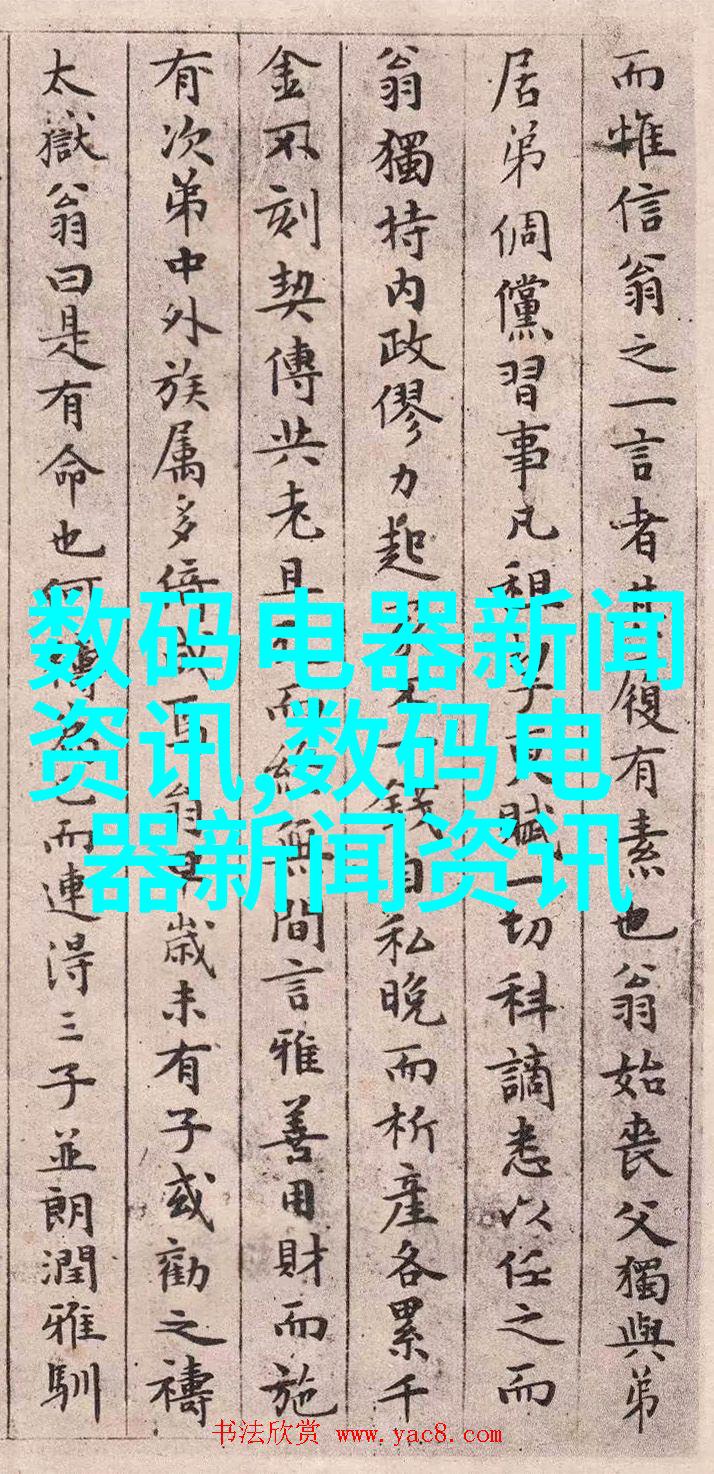 而惟信翁之一言者其履有素也翁始喪父獨與弟
居弟倜儻習事凡租更賦一切科謫悉以任之而
翁獨持内政僇力起一錢自私晚而析產各累千
金不刻契傳共老且而無間言雅善用財而施
有次第中外族属多倚成翁早歲未有子或勸之禱
太嶽翁曰是有命也何禱為已而連得三子並朗潤雅馴
数码电器新闻
资讯,数码电
器新闻资讯
书法欣赏 www.yac8.com